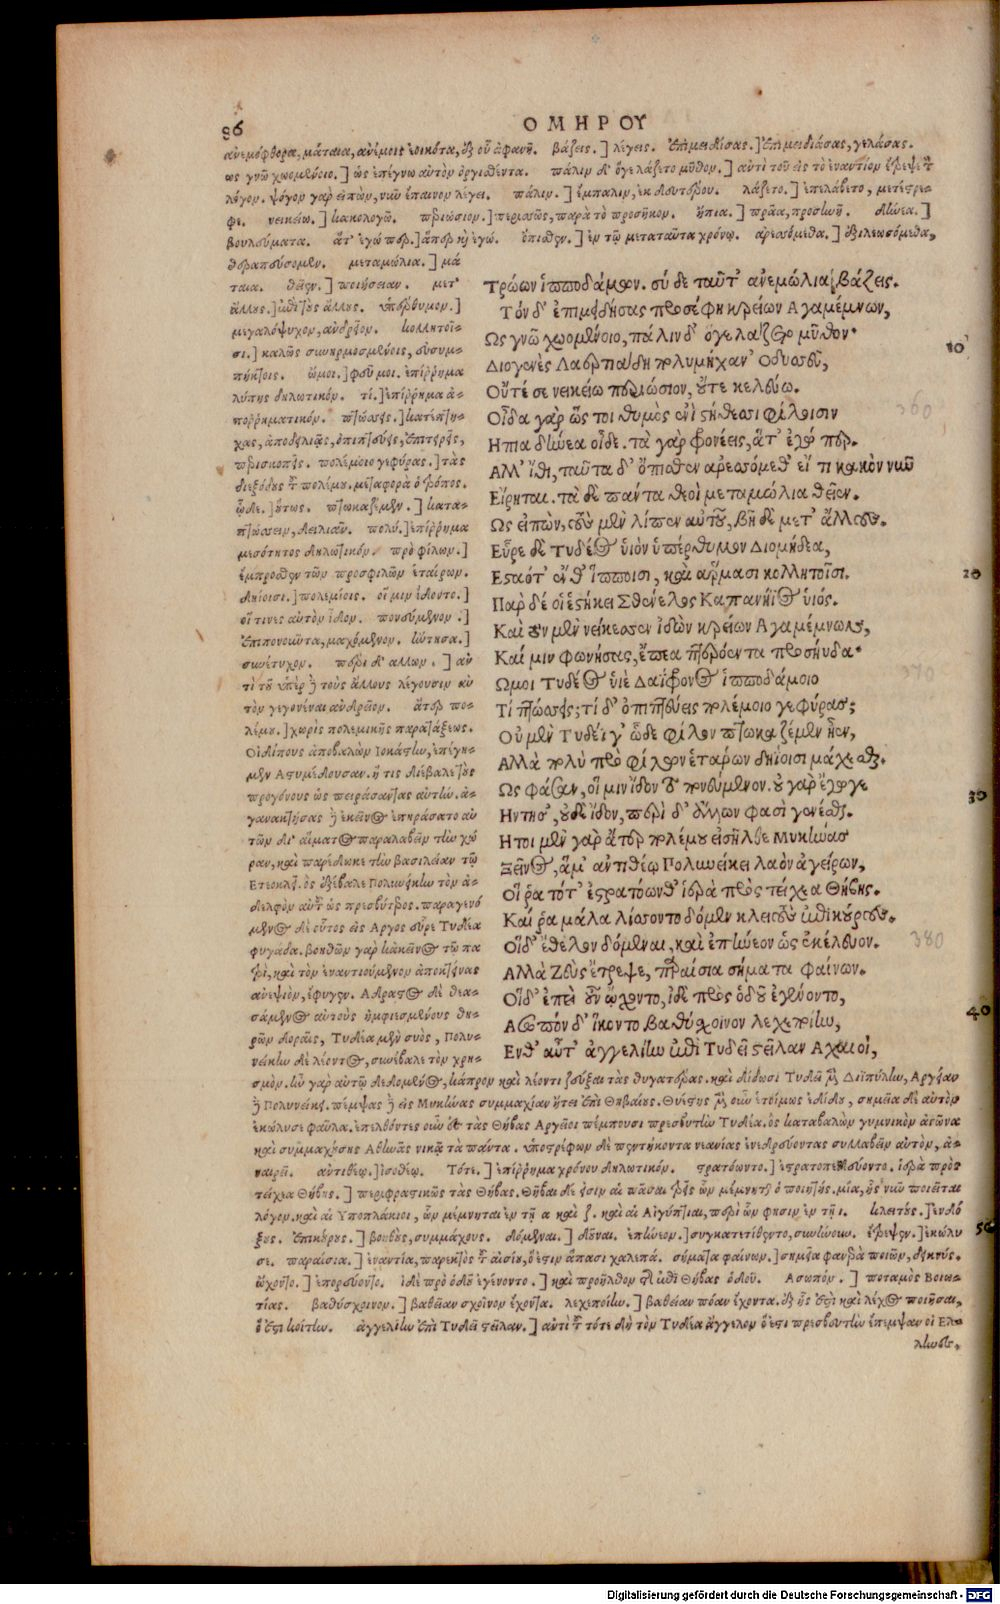 86
ΟΜΗΡΟΥ
ἀνεμόφθορα, μάταια, ἀνέμοις ἐοικότα, ἐξ οὗ ἀφανῆ. βάζεις.] λέγεις. ἐπιμειδίσας.] ἐπιμειδιάσας, γελάσας.
ὡς γνῶ χωομένοιο.] ὡς ἐπέγνω αὐτὸν ὀργισθέντα. πάλιν δ' ὅγε λάζετο μῦθον.] ἀντὶ τοῦ εἰς τὸ ἐναντίον ἔτρεψε τὸν
λόγον. ψόγον γὰρ εἰπὼν, νῦν ἔπαινον λέγει. πάλιν.] ἔμπαλιν, ἐκ δευτέρου. λάζετο.] ἐπελάβετο, μετέτρε-
ψε. νεικείω.] κακολογῶ. περιώσιον.] περισσῶς, παρὰ τὸ προσῆκον. ἤπια.] πρᾶα, προσηνῆ. δήνεα.]
βουλεύματα. ἅτ' ἐγώ περ.] ἅπερ κἠ ἐγώ. ὄπισθεν.] ἐν τῷ μεταταῦτα χρόνῳ. ἀρεσόμεθα.] ἐξιλεωσόμεθα,
θεραπεύσομεν. μεταμώλια.] μά
ταια. θεῖεν.] ποιήσειαν. μετ'
ἄλλους.] ἐπὶ τοὺς ἄλλους. ὑπέρθυμον.]
μεγαλόψυχον, ἀνδρεῖον. κολλητοῖ-
σι.] καλῶς συνηρμοσμένοις, συσυμ-
πήκτοις. ὤμοι.] φεῦ μοι. ἐπίρρημα
λύπης δηλωτικόν. τί.] ἐπίρρημα ἀ-
πορρηματικόν. πτώσσεις.] κατέπτη-
χας, ἀποδειλιᾷς, ὀπιπτεύεις, ἐπιτηρεῖς,
περισκοπεῖς. πολέμοιο γεφύρας.] τὰς
διεξόδους τοῦ πολέμου. μεταφορὰ ὁ τρόπος.
ὧδε.] οὕτως. πτωκαζέμεν.] κατα-
πτώσσειν, δειλιᾶν. πολύ.] ἐπίρρημα
μεσότητος δηλωτικόν. πρὸ φίλων.]
ἔμπροσθεν τῶν προσφιλῶν ἑταίρων.
δηίοισι.] πολεμίοις. οἵ μιν ἴδοντο.]
οἵ τινες αὐτὸν ἴδον. πονεύμενον.]
ἐπιπονοῦντα, μαχόμενον. ἤντησα.]
συνέτυχον. περὶ δ' ἄλλων.] ἀν
τὶ τοῦ ὑπὲρ ἢ τοὺς ἄλλους λέγουσιν αὐ
τὸν γεγονέναι ἀνδρεῖον. ἄτερ πο-
λέμου.] χωρὶς πολεμικῆς παρατάξεως.
Οἰδίπους ἀποβαλὼν Ἰοκάστην, ἐπέγη-
μεν Ἀστυμέδουσαν. ἥ τις διέβαλε τοὺς
προγόνους ὡς πειράσαντας αὐτήν. ἀ-
γανακτήσας ἢ ἐκεῖνος ἐπηράσατο αὐ
τῶν δι' αἵματος παραλαβεῖν τὴν χώ
ραν, καὶ παρέδωκε τὴν βασιλείαν τῷ
Ἐτεοκλεῖ. ὃς ἐξέβαλε Πολυνείκην τὸν ἀ-
δελφὸν αὐτοῦ ὡς πρεσβύτερος. παραγενό
μενος δὲ οὗτος εἰς Ἄργος εὗρε Τυδέα
φυγάδα. βοηθῶν γὰρ κἀκεῖνος τῷ πα
τρὶ, καὶ τὸν ἐναντιούμενον ἀποκτείνας
ἀνεψιὸν, ἔφυγεν. Ἄδραστος δὲ θεα-
σάμενος αὐτοὺς ἠμφιεσμένους θη-
ρῶν δοραῖς, Τυδέα μὲν συὸς, Πολυ-
νείκην δὲ λέοντος, συνέβαλε τὸν χρη-
Τρώων ἱπποδάμων. σὺ δὲ ταῦτ' ἀνεμώλια βάζεις.
Τὸν δ' ἐπιμειδήσας προσέφη κρείων Ἀγαμέμνων,
Ὡς γνῶ χωομένοιο, πάλιν δ' ὅγε λάζετο μῦθον·
10
Διογενὲς Λαερτιάδη πολυμήχαν' Ὀδυσσεῦ,
Οὔτέ σε νεικείω περιώσιον, οὔτε κελεύω.
360
Οἶδα γὰρ ὥς τοι θυμὸς ἐνὶ στήθεσσι φίλοισιν
Ἤπια δήνεα οἶδε. τὰ γὰρ φρονέεις, ἅτ' ἐγώ περ.
Ἀλλ' ἴθι, ταῦτα δ' ὄπισθεν ἀρεσσόμεθ' εἴ τι κακὸν νῦν
Εἴρηται. τὰ δὲ πάντα θεοὶ μεταμώλια θεῖεν.
Ὣς εἰπὼν, τοὺς μὲν λίπεν αὐτοῦ, βῆ δὲ μετ' ἄλλους.
Εὗρε δὲ Τυδέος υἱὸν ὑπέρθυμον Διομήδεα,
20
Ἑσταότ' ἔνθ' ἵπποισι, καὶ ἅρμασι κολλητοῖσι.
Πὰρ δέ οἱ ἑστήκει Σθένελος Καπανήϊος υἱός.
Καὶ τὸν μὲν νείκεσσεν ἰδὼν κρείων Ἀγαμέμνων,
Καί μιν φωνήσας, ἔπεα πτερόεντα προσηύδα·
370
Ὤμοι Τυδέος υἱὲ δαΐφρονος ἱπποδάμοιο
Τί πτώσσεις; τί δ' ὀπιπτεύεις πολέμοιο γεφύρας;
Οὐ μὲν Τυδέϊ γ' ὧδε φίλον πτωκαζέμεν ἦεν,
Ἀλλὰ πολὺ πρὸ φίλων ἑτάρων δηίοισι μάχεσθαι.
30
Ὣς φάσαν, οἵ μιν ἴδον το πονεύμενον. οὐ γὰρ ἔγωγε
Ἤντησ', οὐδὲ ἴδον, περὶ δ' ἄλλων φασὶ γενέσθαι.
Ἤτοι μὲν γὰρ ἄτερ πολέμου εἰσῆλθε Μυκήνας
Ξεῖνος, ἅμ' ἀντιθέῳ Πολυνείκει λαὸν ἀγείρων,
Οἵ ῥα τότ' ἐστρατόωνθ' ἱερὰ πρὸς τείχεα Θήβης.
Καί ῥα μάλα λίσσοντο δόμεν κλειτοὺς ἐπικούρους.
380
Οἱ δ' ἔθελον δόμεναι, καὶ ἐπῄνεον ὡς ἐκέλευον.
Ἀλλὰ Ζεὺς ἔτρεψε, παραίσια σήματα φαίνων.
Οἱ δ' ἐπεὶ οὖν ᾤχοντο, ἰδὲ πρὸς ὁδοῦ ἐγένοντο,
40
Ἀσωπὸν δ' ἵκοντο βαθύσχοινον λεχεποίην,
Ἔνθ' αὖτ' ἀγγελίην ἐπὶ Τυδεῖ στεῖλαν Ἀχαιοί,
σμὸν. ἦν γὰρ αὐτῷ δεδομένος, κάπρον καὶ λέοντι ζεῦξαι τὰς θυγατέρας. καὶ δίδωσι Τυδεῖ μὲν Δηϊπύλην, Ἀργείαν
ἢ Πολυνείκει. πέμψας ἢ εἰς Μυκήνας συμμαχίαν ᾔτει ἐπὶ Θηβαίους. Θυέστης μὲν οὖν ἑτοίμως ἐδίδου, σημεῖα δὲ αὐτὸν
ἐκώλυσε φαῦλα. ἐπελθόντες οὖν ἐπὶ τὰς Θήβας Ἀργεῖοι πέμπουσι πρεσβευτὴν Τυδέα. ὃς καταβαλὼν γυμνικὸν ἀγῶνα
καὶ συμμαχήσης Ἀθηνᾶς νικᾷ τὰ πάντα. ὑποστρέφων δὲ πεντήκοντα νεανίας ἐνεδρεύοντας συλλαβεῖν αὐτὸν, ἀ-
ναιρεῖ. ἀντιθέῳ.] ἰσοθέῳ. Τότε.] ἐπίρρημα χρόνου δηλωτικόν. στρατόωντο.] ἐστρατοπεδεύοντο. ἱερὰ πρὸς
τείχεα Θήβης.] περιφραστικῶς τὰς Θήβας. Θῆβαι δέ εἰσιν αἱ πᾶσαι τρεῖς ὧν μέμνηται ὁ ποιητής. μία, ἧς νῦν ποιεῖται
λόγον. καὶ αἱ Ὑποπλάκιοι, ὧν μέμνηται ἐν τῇ α καὶ ζ. καὶ αἱ Αἰγύπτιαι, περὶ ὧν φησιν ἐν τῇ ι. κλειτούς.] ἐνδό
50
ξους. ἐπικούρους.] βοηθοὺς, συμμάχους. δόμεναι.] δοῦναι. ἐπῄνεον.] συγκατετίθεντο, συνῄνουν. ἔτρεψεν.] ἐκώλυ
σε. παραίσια.] ἐναντία, παρεκτὸς τοῦ αἰσίου, ὅ ἐστιν ἅπασι χαλεπά. σήματα φαίνων.] σημεῖα φανερὰ ποιῶν, δεικνύς.
ᾤχοντο.] ἐπορεύοντο. ἰδὲ πρὸ ὁδοῦ ἐγένοντο.] καὶ προῆλθον τῆς ἐπὶ Θήβας ὁδοῦ. Ἀσωπόν.] ποταμὸς Βοιω-
τίας. βαθύσχοινον.] βαθεῖαν σχοῖνον ἔχοντα. λεχεποίην.] βαθεῖαν πόαν ἔχοντα. ἐξ ἧς ἐστὶ καὶ λέχος ποιῆσαι,
ὅ ἐστι κοίτην. ἀγγελίην ἐπὶ Τυδεῖ στεῖλαν.] ἀντὶ τοῦ τότε δὴ τὸν Τυδέα ἄγγελον ὅ ἐστι πρεσβευτὴν ἔπεμψαν οἱ Ἕλ-
ληνες.
Digitalisierung gefördert durch die Deutsche Forschungsgemeinschaft - DFG